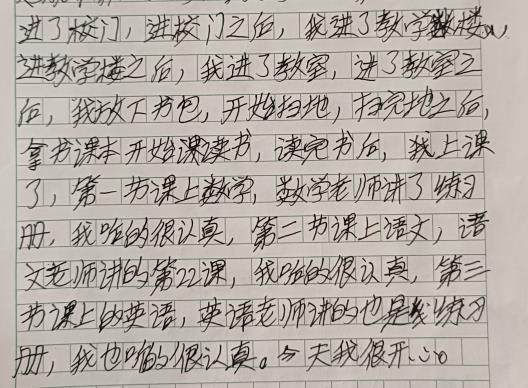 进了校门，进校门之后，我进了教学楼，
进教学楼之后，我进了教室，进了教室之
后，我放下书包，开始扫地，扫完地之后，
拿书课本开始课读书，读完书后，我上课
了，第一节课上数学，数学老师讲了练习
册，我听的很认真，第二节课上语文，语
文老师讲的第22课，我听的很认真，第三
节课上的英语，英语老师讲的也是练习
册，我也听的很认真。今天我很开心。